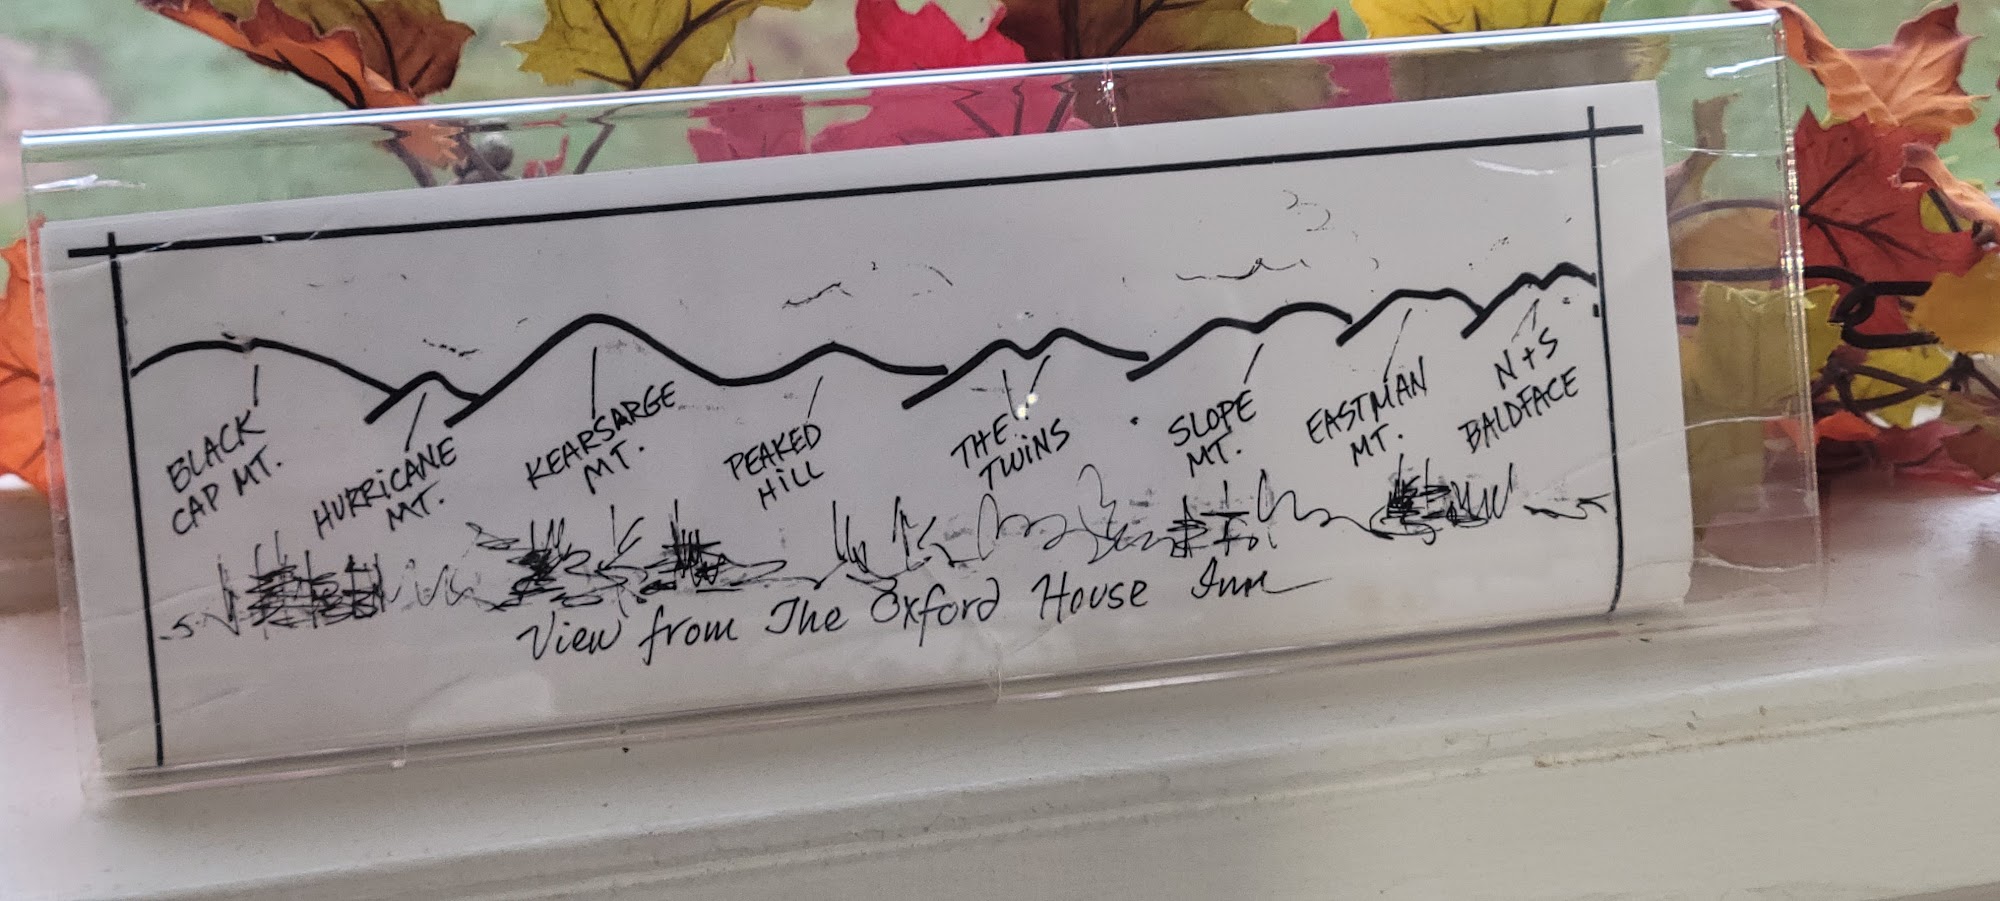 BLACK
CAP MT.
HURRICANE
MT.
KEARSARGE
MT.
PEAKED
HILL
THE
TWINS
SLOPE
MT.
EASTMAN
MT.
N + S
BALDFACE
View from The Oxford House Inn